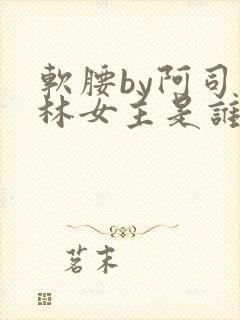 軟腰by阿司
林女主是誰
茗末